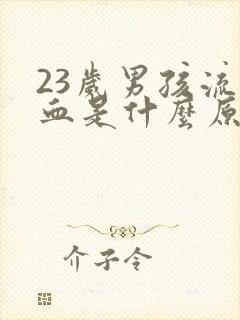 23歲男孩流
血是什麼原
介子令